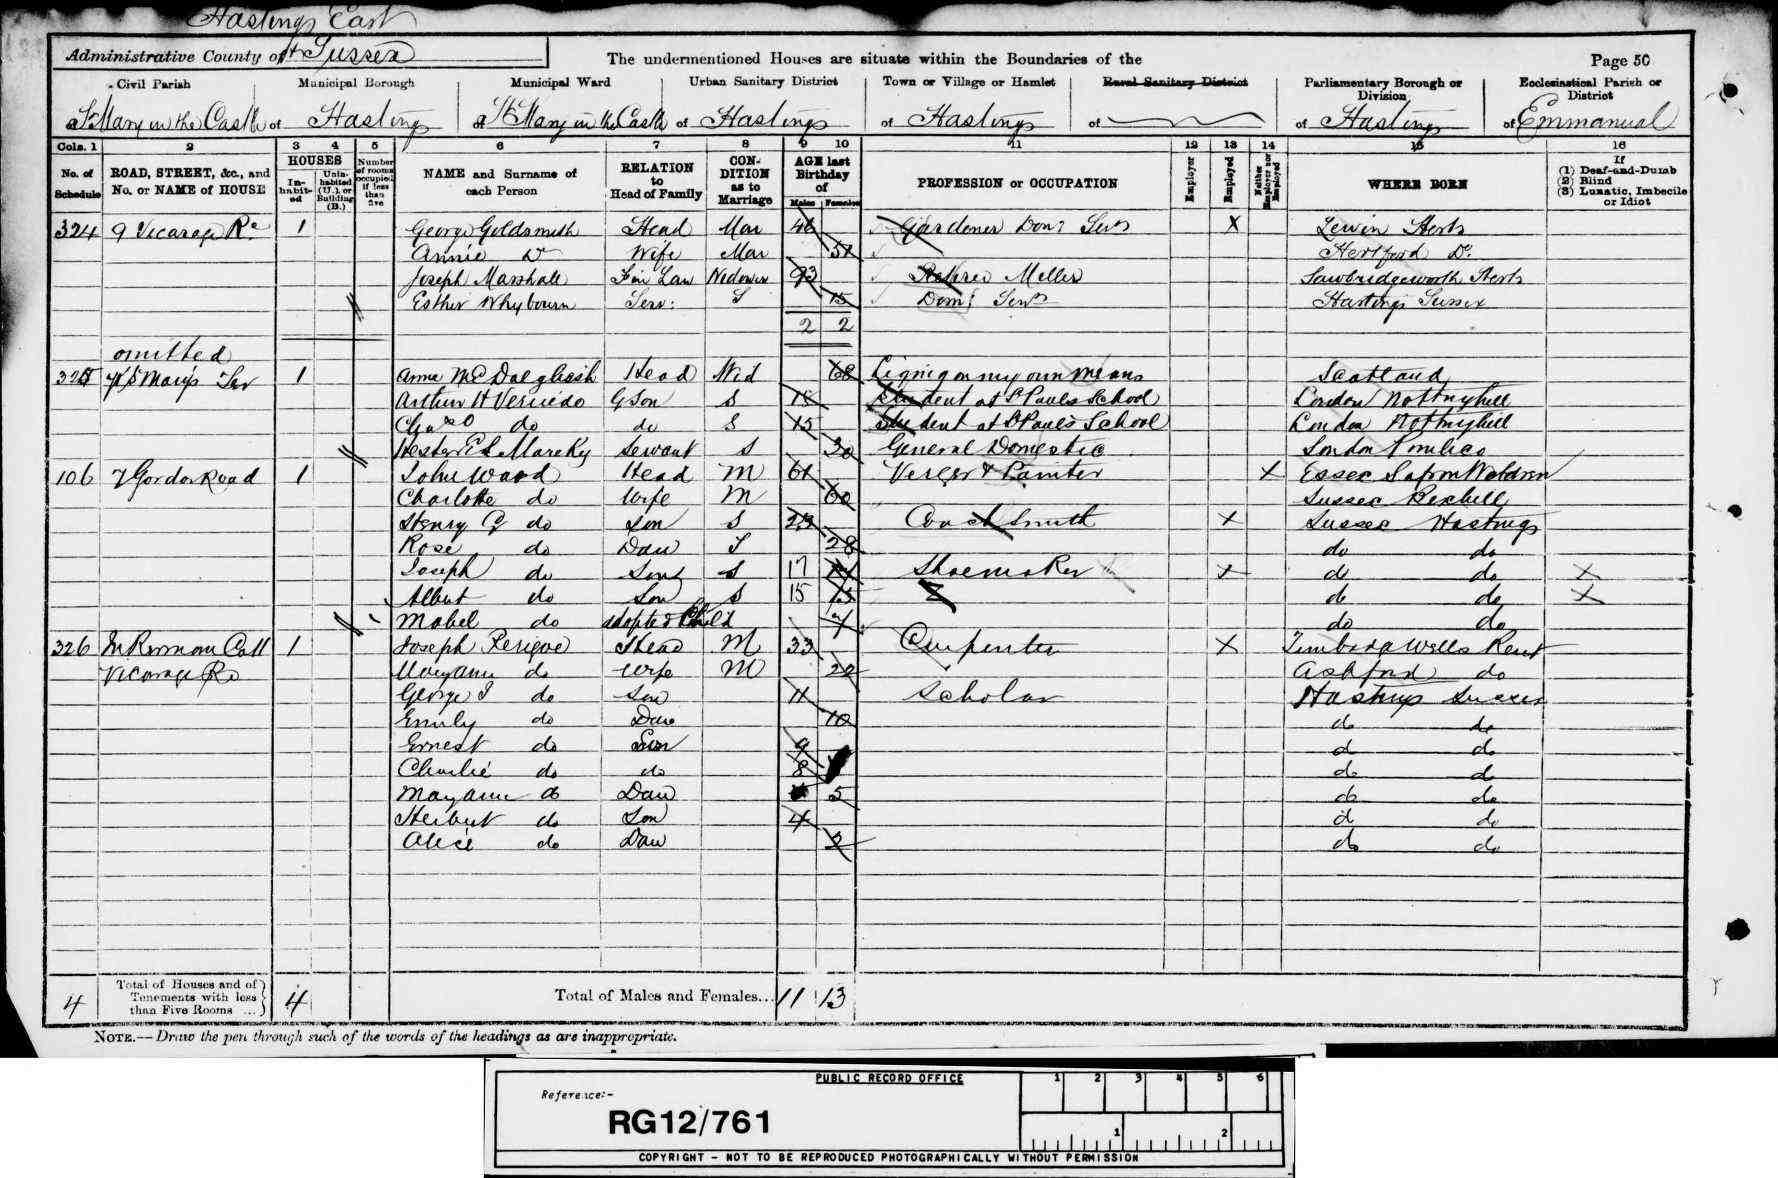 Hastings East
Administrative County of Sussex The undermentioned Houses are situate within the Boundaries of the Page 50
Civil Parish Municipal Borough Municipal Ward Urban Sanitary District Town or Village or Hamlet Rural Sanitary District Parliamentary Borough or Division Ecclesiastical Parish or District
of St Mary in the Castle of Hastings of St Mary in the Castle of Hastings of Hastings of of Hastings of Emmanuel
Cols. 1 2 3 4 5 6 7 8 9 10 11 12 13 14 15 16
No. of Schedule ROAD, STREET, &c., and No. or NAME of HOUSE HOUSES Inhabited Uninhabited (U.), or Building (B.) Number of rooms occupied if less than five NAME and Surname of each Person RELATION to Head of Family CONDITION as to Marriage AGE last Birthday of Males Females PROFESSION or OCCUPATION Employer Employed Neither Employer nor Employed WHERE BORN If (1) Deaf-and-Dumb (2) Blind (3) Lunatic, Imbecile or Idiot
324 9 Vicarage Rd 1 George Goldsmith Head Mar 46 Gardener Domc Servt X Herts
Annie Do Wife Mar 51 Hertford Do
Joseph Marshall F in Law Widower 93 Retired Miller Sawbridgeworth Herts
Esther Whybourn Serv: S 15 Domc Servt Hastings Sussex
2 2
omitted
325 St Mary's Ter 1 Anna Mc Dalgliesh Head Wid 68 Living on my own means Scotland
Arthur H Vernedo GSon S 18 Student at St Pauls School London Nottinghill
Chaso do do S 15 Student at St Pauls School London Nottinghill
Hester Servant S 30 General Domestic London Pimlico
106 7 Gordon Road 1 John Ward Head M 61 Verger & Painter X Essex Safron Waldron
Charlotte do Wife M 60 Sussex Bexhill
Henry G do Son S 23 Coach Smith X Sussex Hastings
Rose do Dau S 28 do do
Joseph do Son S 17 Shoemaker X do do X
Albert do Son S 15 do do X
Mabel do adopted Child 7 do do
326 Kerrmau Cott 1 Joseph Head M 33 Carpenter X Tunbridge Wells Kent
Vicarage Rd Maryann do Wife M 22 Ashford do
George J do Son 11 Scholar Hastings Sussex
Emily do Dau 10 do do
Ernest do Son 9 do do
Charlie do do 8 do do
Maryann do Dau 5 do do
Herbert do Son 4 do do
Alice do Dau 2 do do
4 Total of Houses and of Tenements with less than Five Rooms ... 4 Total of Males and Females... 11 13
NOTE.—Draw the pen through such of the words of the headings as are inappropriate.
PUBLIC RECORD OFFICE 1 2 3 4 5 6
Reference:-
RG12/761
1 2
COPYRIGHT - NOT TO BE REPRODUCED PHOTOGRAPHICALLY WITHOUT PERMISSION